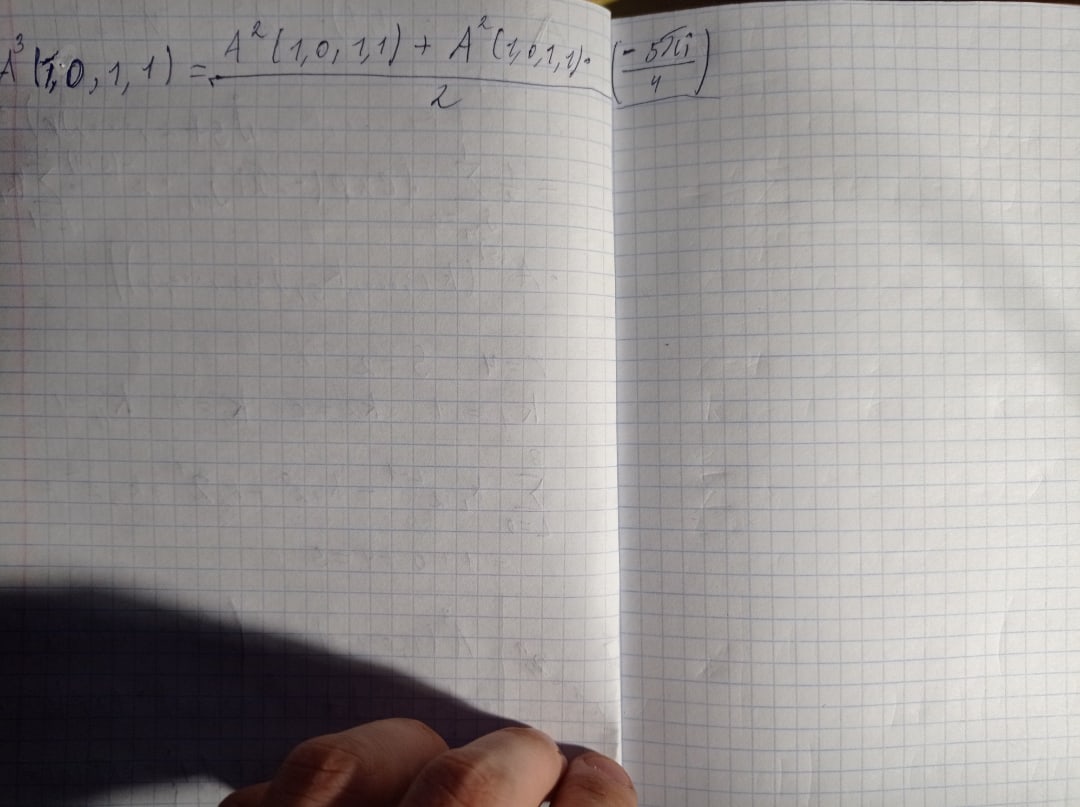 A³(1,0,1,1) = (A²(1,0,1,1) + A²(1,0,1,1)·(-5πi/4))/2